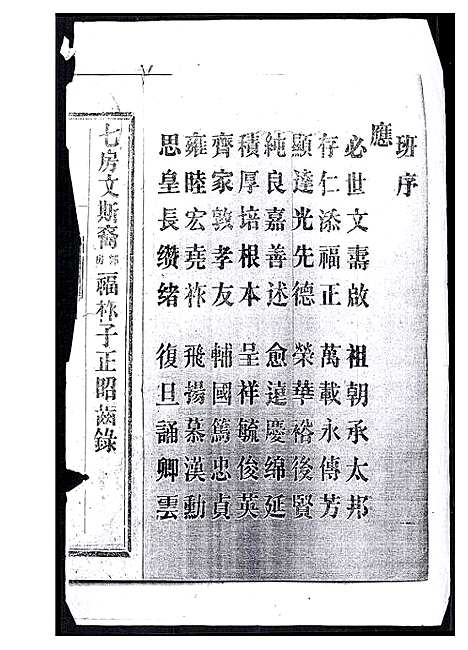 班序
應
必世文壽啟　祖朝承太邦
存仁添福正　萬載永傳芳
顯達光先德　榮華裕後賢
純良嘉善述　愈遠慶綿延
積厚培根本　呈祥毓俊英
齊家敦孝友　輔國篤忠貞
雍睦宏堯祚　飛揚慕漢勳
思皇長纘緒　復旦誦卿雲
七房文斯裔 房 福祚子正昭齒錄